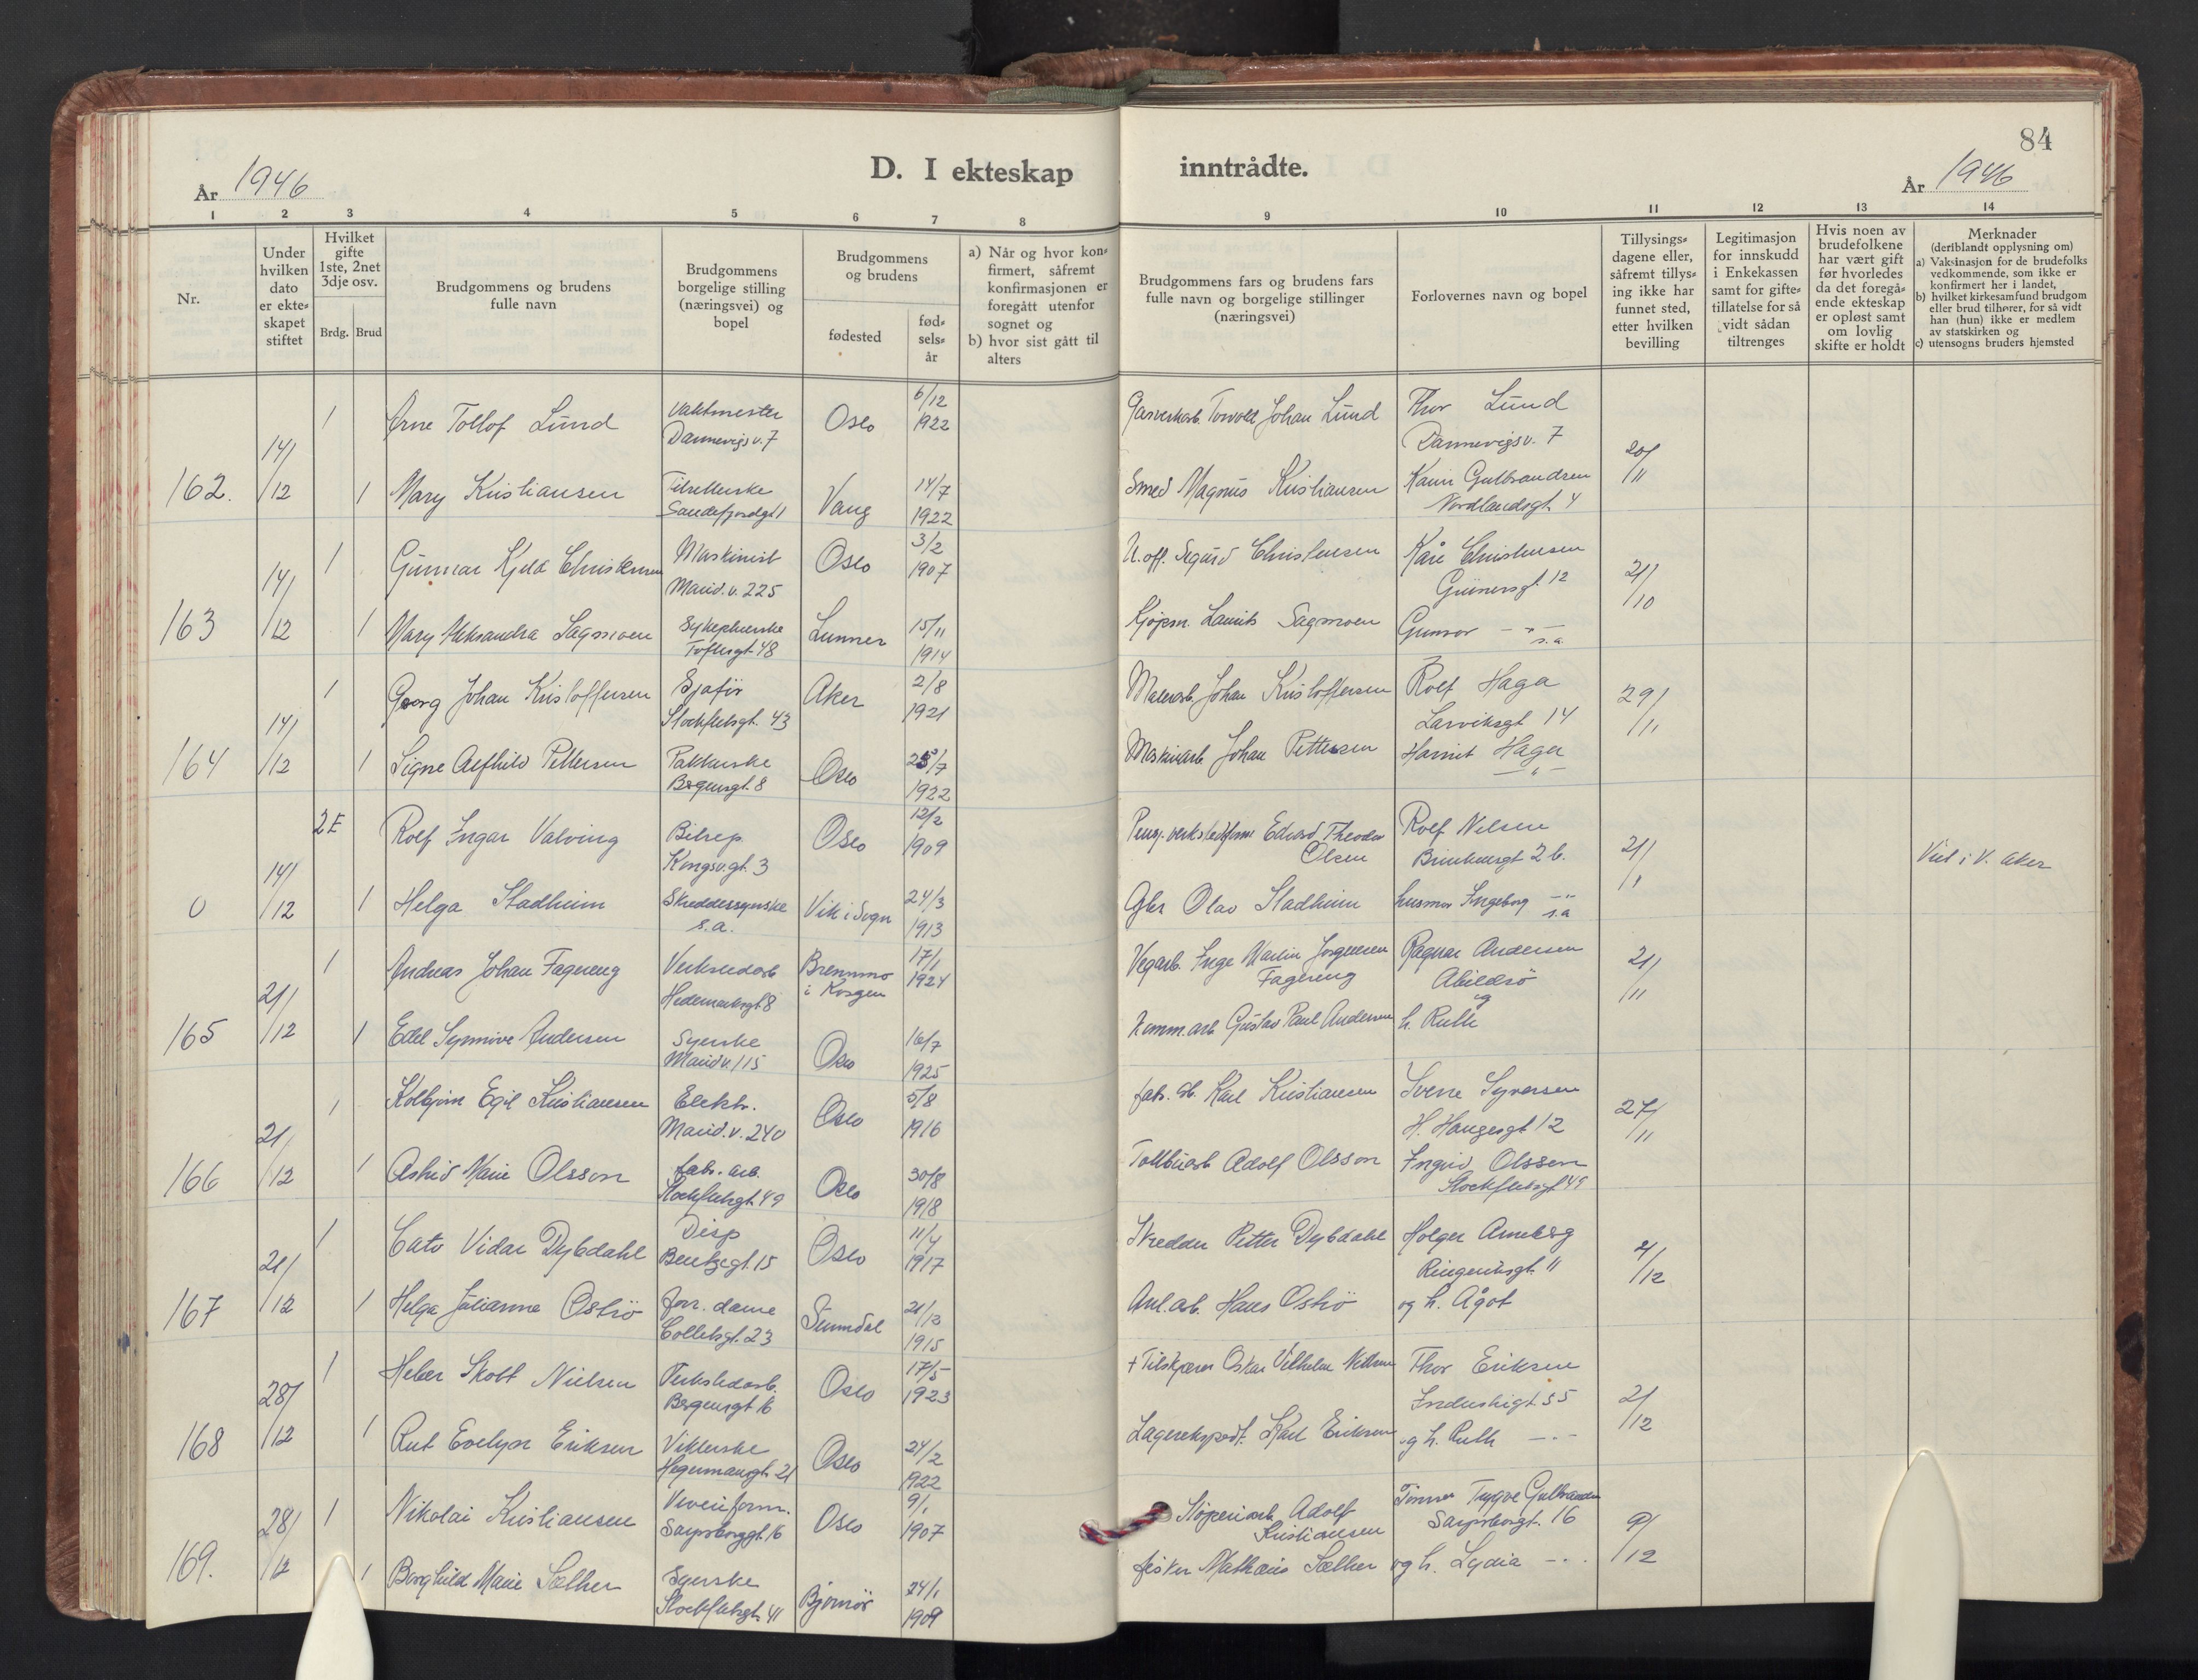 84
År 1946
D. I ekteskap inntrådte.
År 1946
1 2 3 4 5 6 7 8 9 10 11 12 13 14
Nr.
Under hvilken dato er ekte-skapet stiftet
Hvilket gifte 1ste, 2net 3dje osv.
Brdg. Brud
Brudgommens og brudens fulle navn
Brudgommens borgelige stilling (næringsvei) og bopel
Brudgommens og brudens
fødested
fød-sels-år
a) Når og hvor kon-firmert, såfremt konfirmasjonen er foregått utenfor sognet og
b) hvor sist gått til alters
Brudgommens fars og brudens fars fulle navn og borgelige stillinger (næringsvei)
Forlovernes navn og bopel
Tillysings-dagene eller, såfremt tillys-ing ikke har funnet sted, etter hvilken bevilling
Legitimasjon for innskudd i Enkekassen samt for gifte-tillatelse for så vidt sådan tiltrenges
Hvis noen av brudefolkene har vært gift før hvorledes da det foregå-ende ekteskap er opløst samt om lovlig skifte er holdt
Merknader (deriblandt opplysning om)
a) Vaksinasjon for de brudefolks vedkommende, som ikke er konfirmert her i landet,
b) hvilket kirkesamfund brudgom eller brud tilhører, for så vidt han (hun) ikke er medlem av statskirken og
c) utensogns bruders hjemsted
162. 14/12
1 Arne Tollof Lund Vaktmester Dannevigsv. 7 Oslo 6/12 1922 Torvold Johan Lund Thor Lund Dannevigsv. 7 20/11
1 Mary Kristiansen Sandefjordgt 1 Vang 14/7 1922 Smed Magnus Kristiansen Karin Gulbrandsen Nordlandsgt. 4
163 14/12
1 Gunnar Kjeld Christensen Maskinist Marid.v. 225 Oslo 3/2 1907 U.off. Sigurd Christensen Kåre Christensen Grünersgt. 12 21/10
1 Mary Aleksandra Sagmoen Sykepleierske Toftesgt 48 Lunner 15/11 1914 Kjøpm. Laurits Sagmoen Gunvor - " - s.a.
164 14/12
1 Georg Johan Kristoffersen Sjåfør Stockfletsgt. 43 Aker 2/8 1921 Malerarb. Johan Kristoffersen Rolf Haga Larviksgt 14 29/11
1 Signe Alfhild Pettersen Pakkerske Bergensgt. 8 Oslo 25/7 1922 Maskinarb Johan Pettersen Harriet Haga - " -
0 14/12
2 E Rolf Ingar Valving Bilrep. Kongsv.gt. 3 Oslo 12/2 1909 Edvard Theodor Olsen Rolf Nilsen 2 b. 21/1 Viet i V. Aker
1 Helga Stadheim Skreddersyerske s.a. Vik i Sogn 24/3 1913 Gbr Olav Stadheim husmor Ingeborg - " - s.a
165 21/12
1 Andreas Johan Fagereng Verkstedarb Hedemarksgt 8 Brennmo i Korgen 17/1 1924 Vegarb. Inge Martin Jørgensen Fagereng Ragnar Andersen Abildsø og 21/11
1 Edel Synnøve Andersen Syerske Marid.v. 115 Oslo 16/7 1925 Gustav Paul Andersen h. Ruth
166 21/12
1 Kolbjørn Egil Kristiansen Elektr. Marid.v. 240 Oslo 5/8 1916 fab. arb. Karl Kristiansen Sverre Syversen H. Haugesgt 12 27/11
1 Astrid Marie Olsson fabr. arb. Stockfletsgt 49 Oslo 30/8 1918 Adolf Olsson Ingrid Olsson Stockfletsgt 49
167 21/12
1 Cato Vidar Dybdahl Disp Bentsegt. 15 Oslo 11/4 1917 Skredder Petter Dybdahl Holger Anneberg Ringeriksgt. 11 4/12
1 Helga Julianne Oströ forr. dame Colletsgt. 23 Sunndal 21/12 1915 Anl.arb. Hans Oströ og h. Ågot
168 28/12
1 Heber Skott Nielsen Verkstedarb. Bergensgt 16 Oslo 17/5 1923 + Tilskjærer Oskar Vilhelm Nielsen Thor Eriksen Industrigt 55 2/12
1 Rut Evelyn Eriksen Viklerske Hegermannsgt. 21 Oslo 24/2 1922 Lagerekspedt. Karl Eriksen og h. Ruth - " -
169. 28/12
1 Nikolai Kristiansen Sarpsborggt. 16 Oslo 9/1 1907 Støperiarb Adolf Kristiansen Tømrer Trygve Gulbrandsen Sarpsborgt. 16 9/12
1 Borghild Marie Sæther Syerske Stockfletsgt. 41 Bjørnör 24/1 1909 fisker Mathæus Sæther og h. Lydia - " -